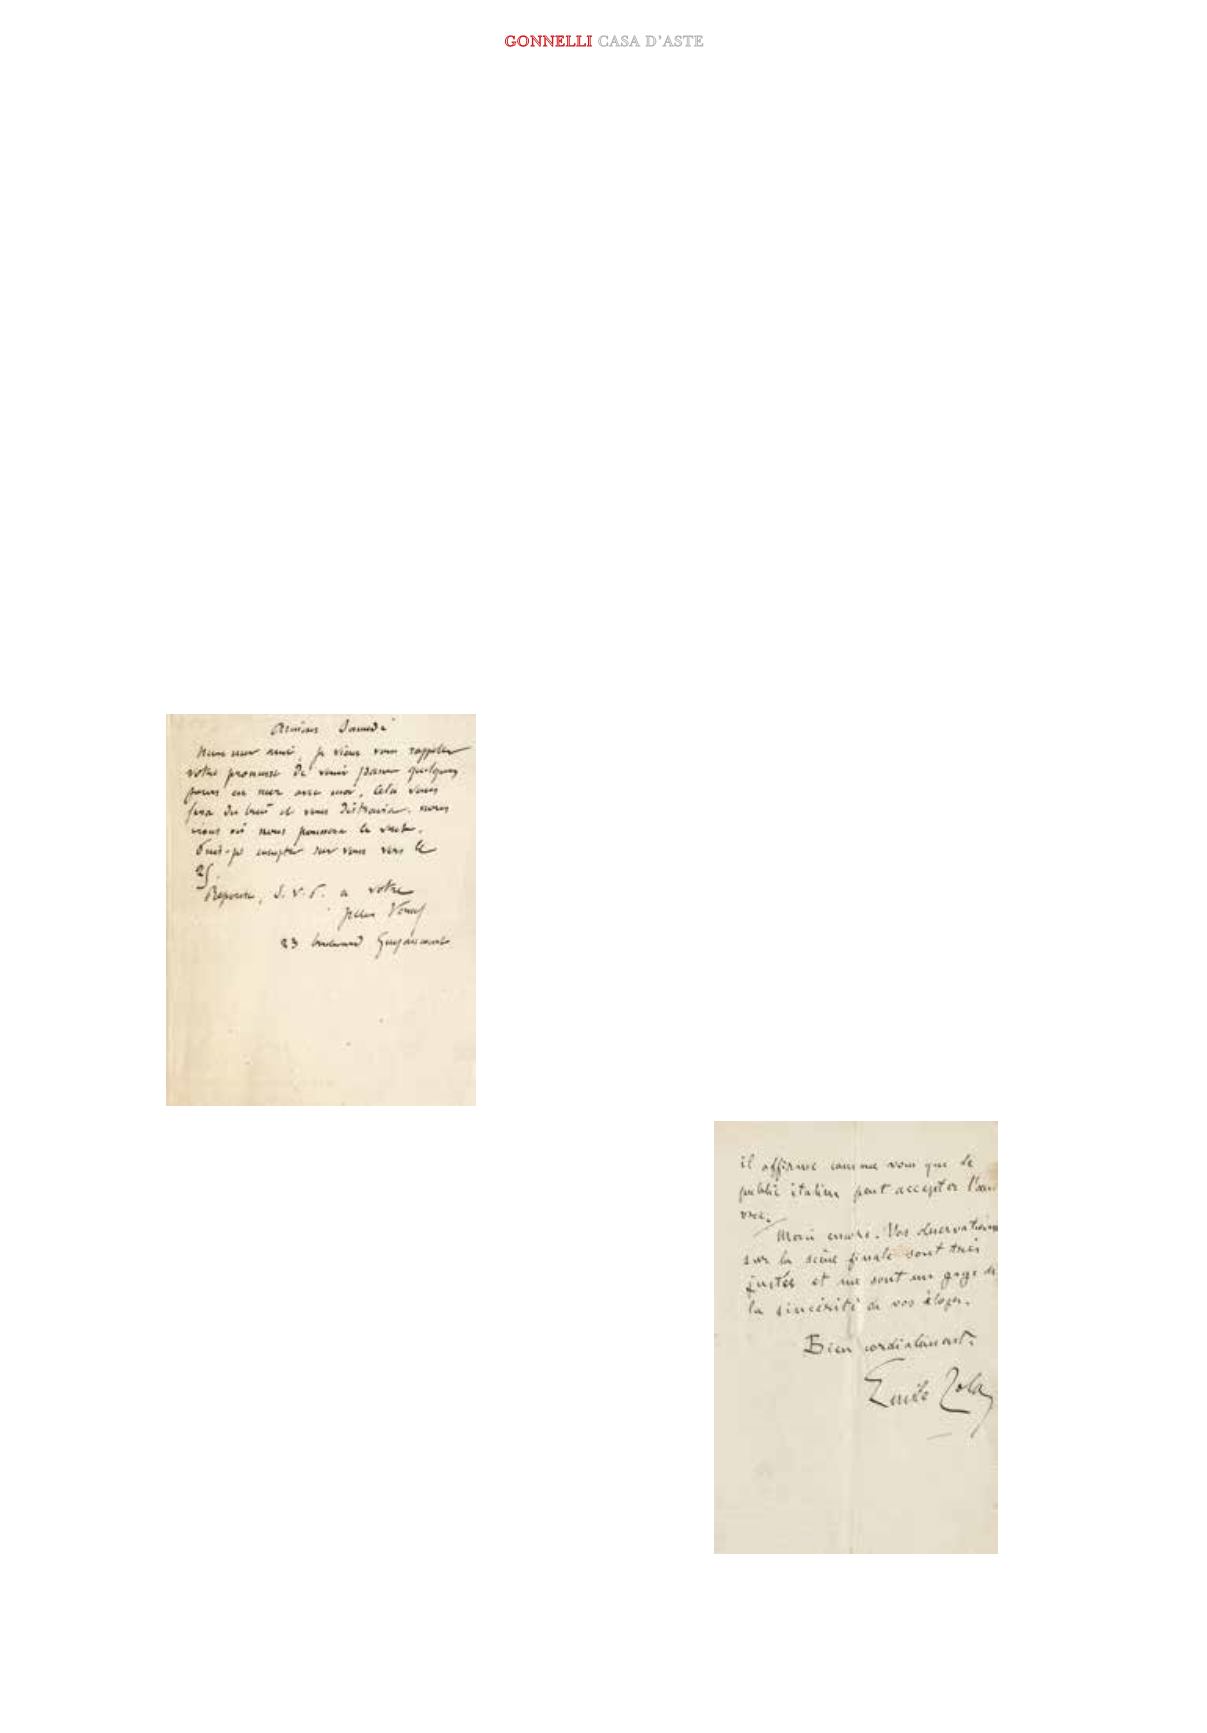 GONNELLI CASA D'ASTE
Amiens Samedi
mon cher ami, je viens vous rappeler
votre promesse de venir passer quelques
jours en mer avec moi, cela vous
fera du bien et vous distraira. nous
irons où nous poussera le vent.
Puis-je compter sur vous vers le
25.
Réponse, S.V.P. à votre
Jules Verne
23 boulevard Guyancourt
il affirme comme vous que le
public italien peut accepter l'œu-
vre.
Merci encore. Vos observations
sur la scène finale sont très
justes et me sont un gage de
la sincérité de vos éloges.
Bien cordialement.
Emile Zola